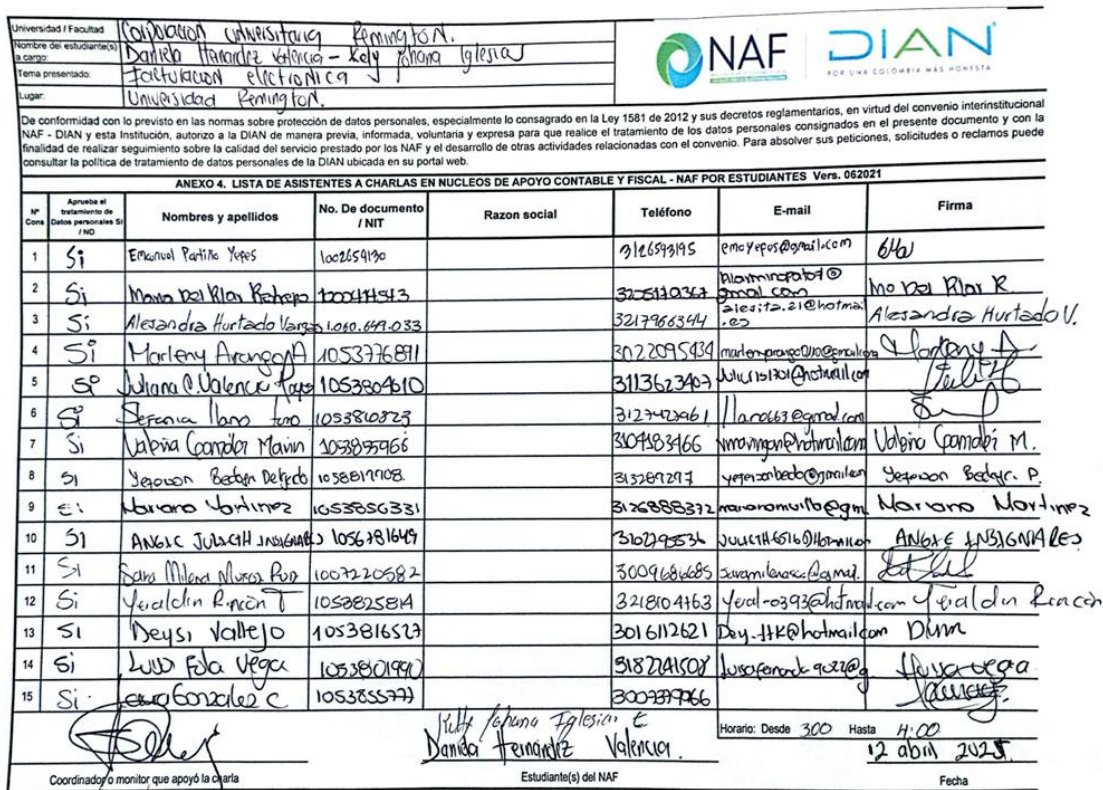 Universidad / Facultad Corporacion universitaria Remington.
Nombre del estudiante(s) a cargo: Daniela Hernandez Valencia - Kely Johana Iglesias
Tema presentado: Facturacion electronica
Lugar: Universidad Remington.
NAF
DIAN
POR UNA COLOMBIA MÁS HONESTA
De conformidad con lo previsto en las normas sobre protección de datos personales, especialmente lo consagrado en la Ley 1581 de 2012 y sus decretos reglamentarios, en virtud del convenio interinstitucional
NAF - DIAN y esta Institución, autorizo a la DIAN de manera previa, informada, voluntaria y expresa para que realice el tratamiento de los datos personales consignados en el presente documento y con la
finalidad de realizar seguimiento sobre la calidad del servicio prestado por los NAF y el desarrollo de otras actividades relacionadas con el convenio. Para absolver sus peticiones, solicitudes o reclamos puede
consultar la política de tratamiento de datos personales de la DIAN ubicada en su portal web.
ANEXO 4. LISTA DE ASISTENTES A CHARLAS EN NUCLEOS DE APOYO CONTABLE Y FISCAL - NAF POR ESTUDIANTES Vers. 062021
N° Cons Aprueba el tratamiento de Datos personales SI / NO Nombres y apellidos No. De documento / NIT Razon social Teléfono E-mail Firma
1 Si Emanuel Patiño Yepes 1002659130 3126593195 emayepes@gmail.com
2 Si Maria Del Pilar Restrepo 3205170367 gmail.com Ma Del Pilar R
3 Si Alesandra Hurtado Vargas 1.060.649.033 3217966344 alesita.21@hotmail.es Alesandra Hurtado V.
4 Si Marleny Arango A 1053776891 3022095434 Marleny A
5 Si Juliana C. Valencia 1053804610 3113623407
6 Si llano 1053810823 3127423961 llano663@gmail.com
7 Si Valeria Marin 1053855966 3104183466 M.
8 Si Yeferson Bedoya Delgado 313289297
9 Mariano Martinez 1053856331 3126888372 Mariano Martinez
10 Si ANGIE JULIETH INSIGNARES 1056781649 ANGIE INSIGNARES
11 Si Sara Milena Muñoz 1007220582 3009686685
12 Si Yeraldin Rincón T 1053825814 3218104763 Yeral-0393@hotmail.com Yeraldin Rincon
13 Si Deysi Vallejo 1053816527 3016112621
14 Si Luisa Fda Vega 1053801990 3182241508 Luisa vega
15 Si Laura Gonzalez C 1053855777 3007379766
Johana Iglesias
Daniela Hernández Valencia.
Horario: Desde 3:00 Hasta 4:00
12 abril 2025
Coordinador o monitor que apoyó la charla Estudiante(s) del NAF Fecha